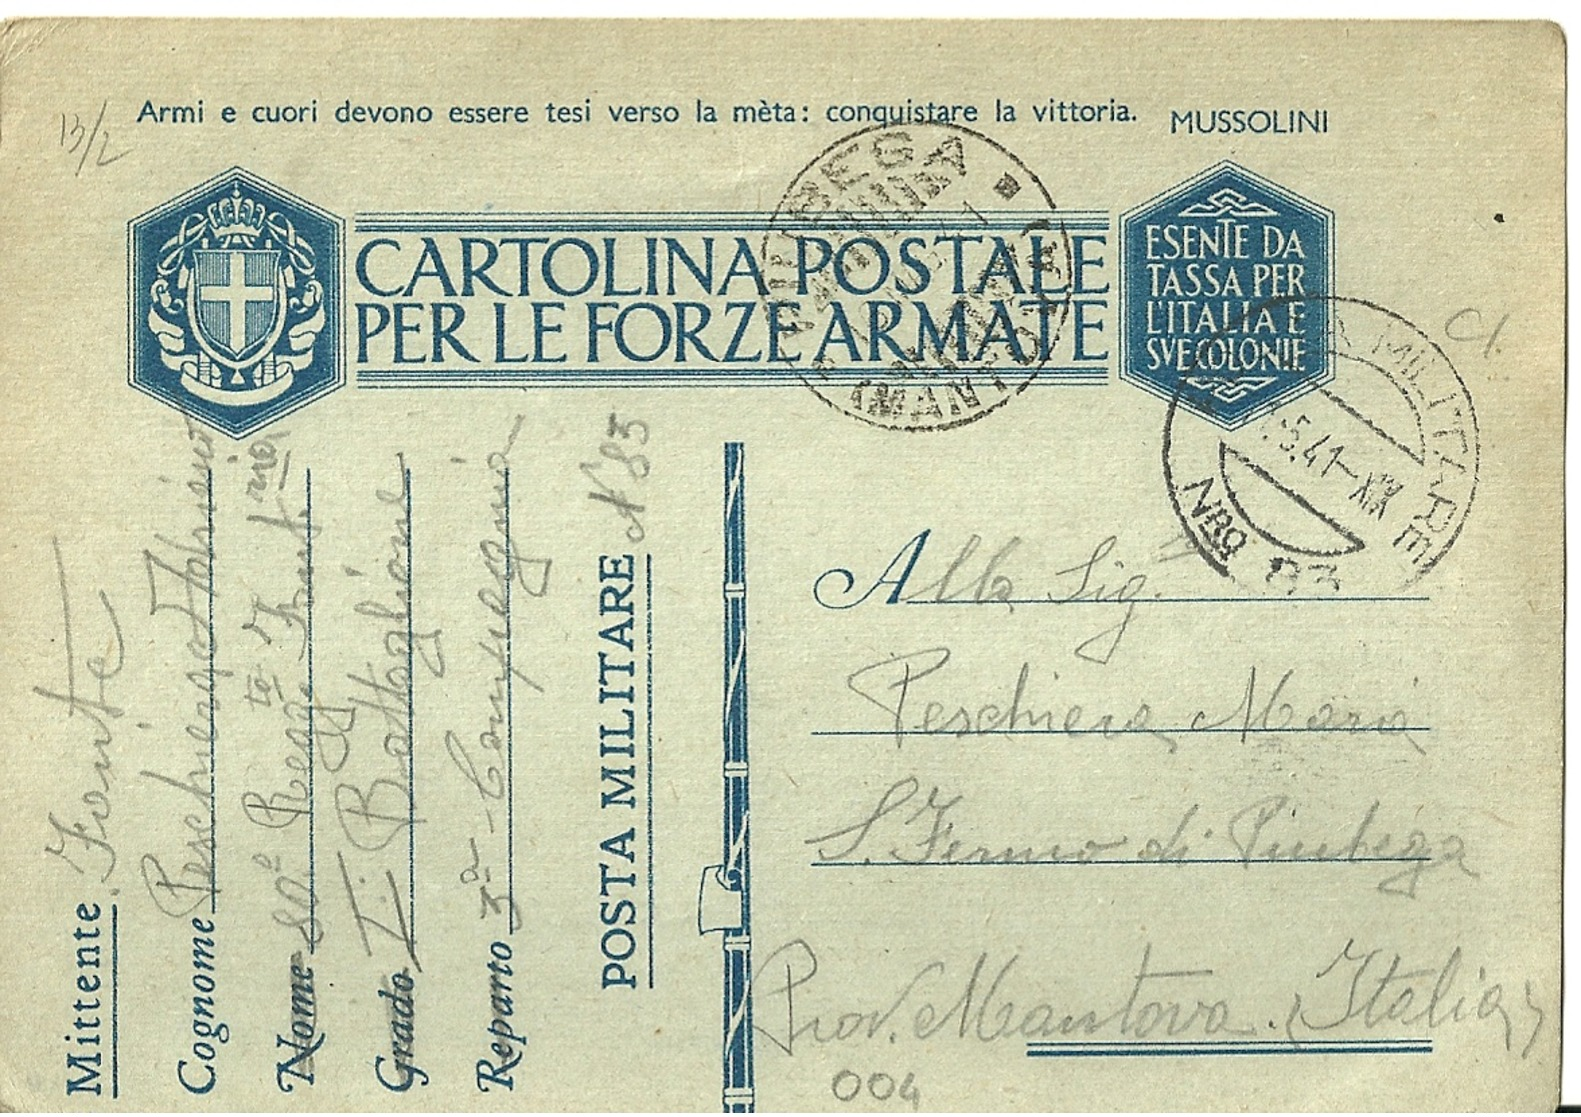 Armi e cuori devono essere tesi verso la mèta: conquistare la vittoria. MUSSOLINI
13/2
CARTOLINA POSTALE
PER LE FORZE ARMATE
ESENTE DA
TASSA PER
L'ITALIA E
SVE COLONIE
PIUBEGA
(MANTOVA)
POSTA MILITARE
.5.41-XIX
NRO 83
Cl.
Mittente Fante
Cognome Peschiera
Nome 80º Regg.
Grado I: Battaglione
Reparto 3ª Compagnia
POSTA MILITARE N 83
Alla Sig.
Peschiera Maria
S. Fermo di Piubega
Prov. Mantova. (Italia)
004